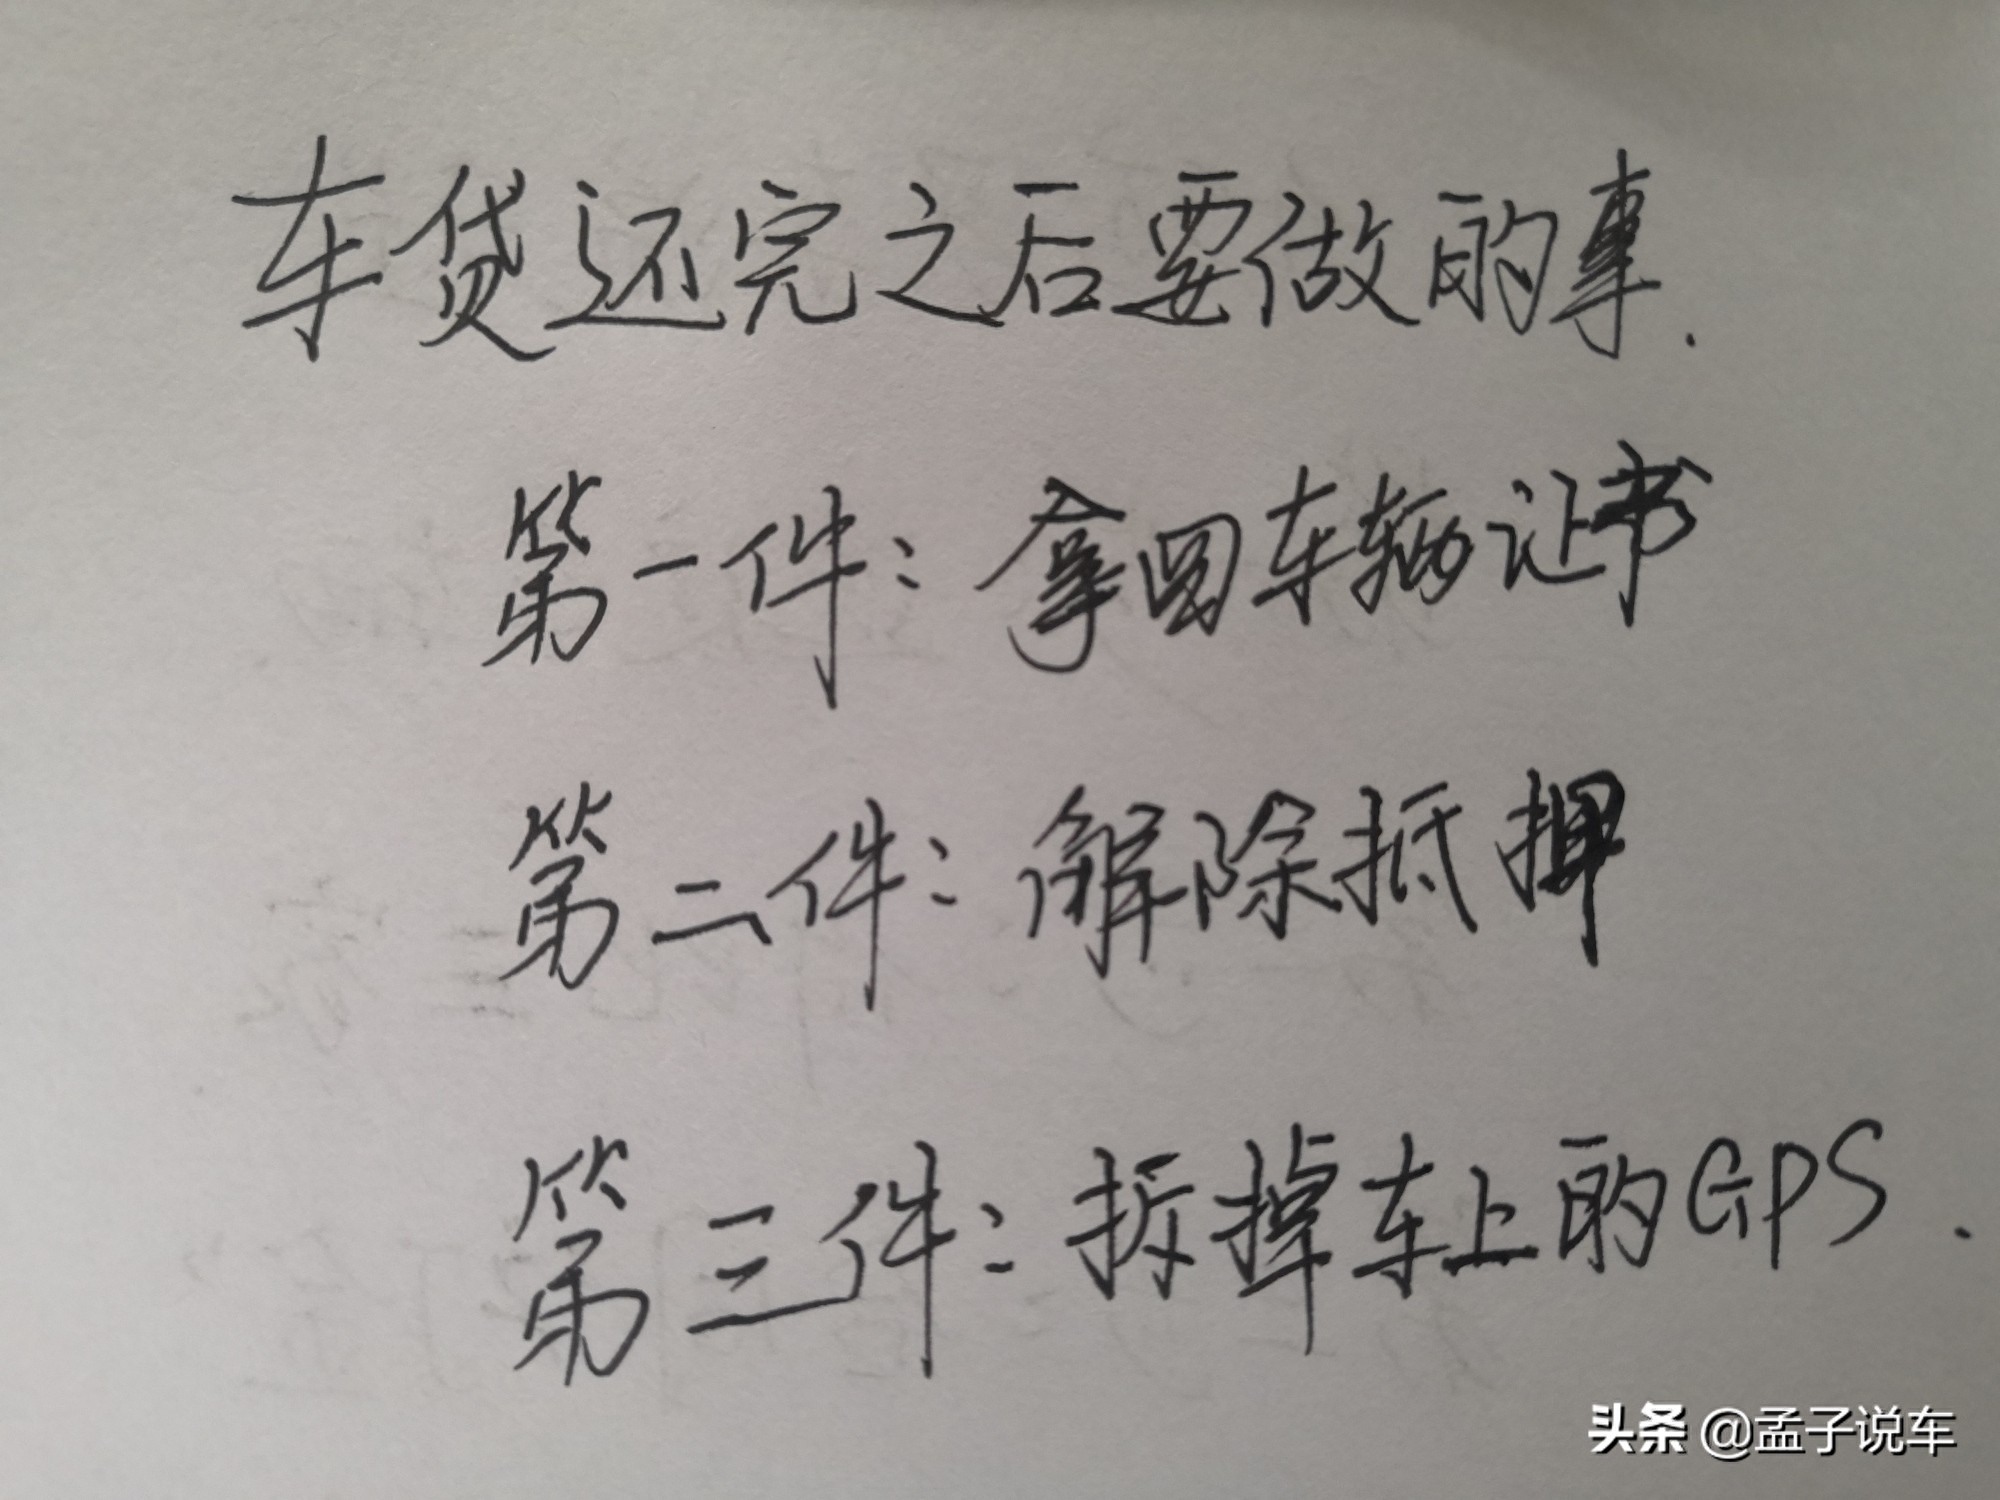 车贷还完之后要做的事.
第一件:拿回车辆证书
第二件:解除抵押
第三件:拆掉车上的GPS.
头条 @孟子说车